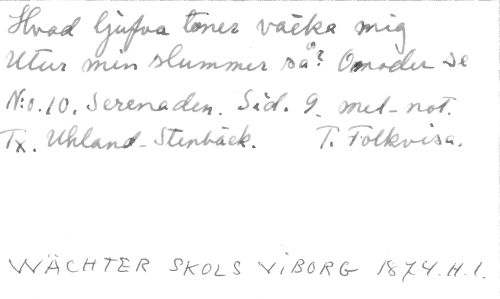 Hvad ljufva toner väcka mig
Utur min slummer så? Omoder se
N:o.10. Serenaden. Sid. 9. mel-not.
Tx. Uhland-Stenbäck. T. Folkvisa.
WÄCHTER SKOLS VIBORG 1874.H.I.